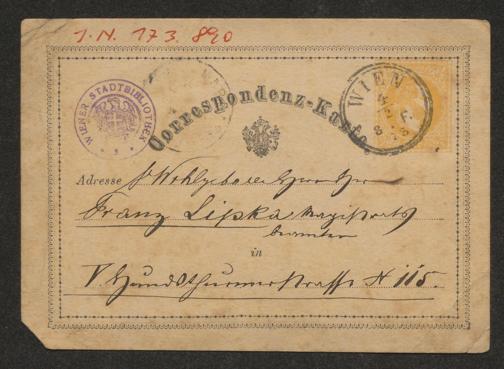 I.N. 173.890
WIENER STADTBIBLIOTHEK
Correspondenz-Karte.
WIEN
Adresse Sr Wohlgeboren Herrn Herrn
Franz Lipka Magistrats
beamten
in
V. Hundsthurmerstrasse N 115.